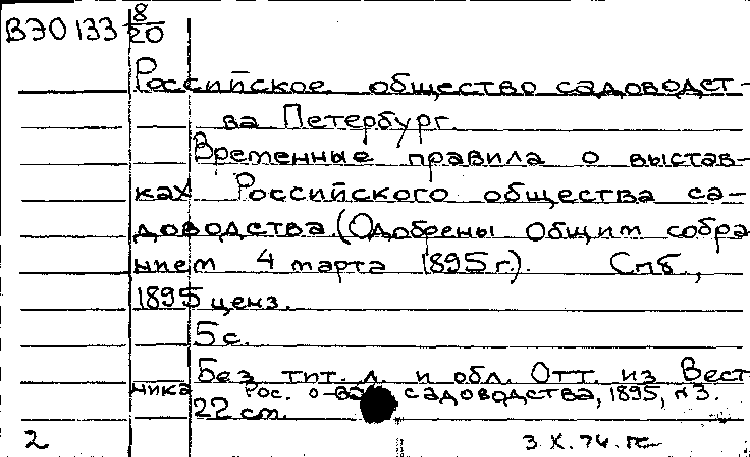 ВЭО 133 8/20
Российское общество садоводст-
ва Петербург.
Временные правила о выстав-
ках Российского общества са-
доводства. (Одобрены Общим собра
нием 4 марта 1895 г.). Спб.,
1895 ценз.
5 с.
Без тит. л. и обл. Отт. из Вест
ника Рос. о-ва садоводства, 1895, №3.
22 см.
2 3.X.74.